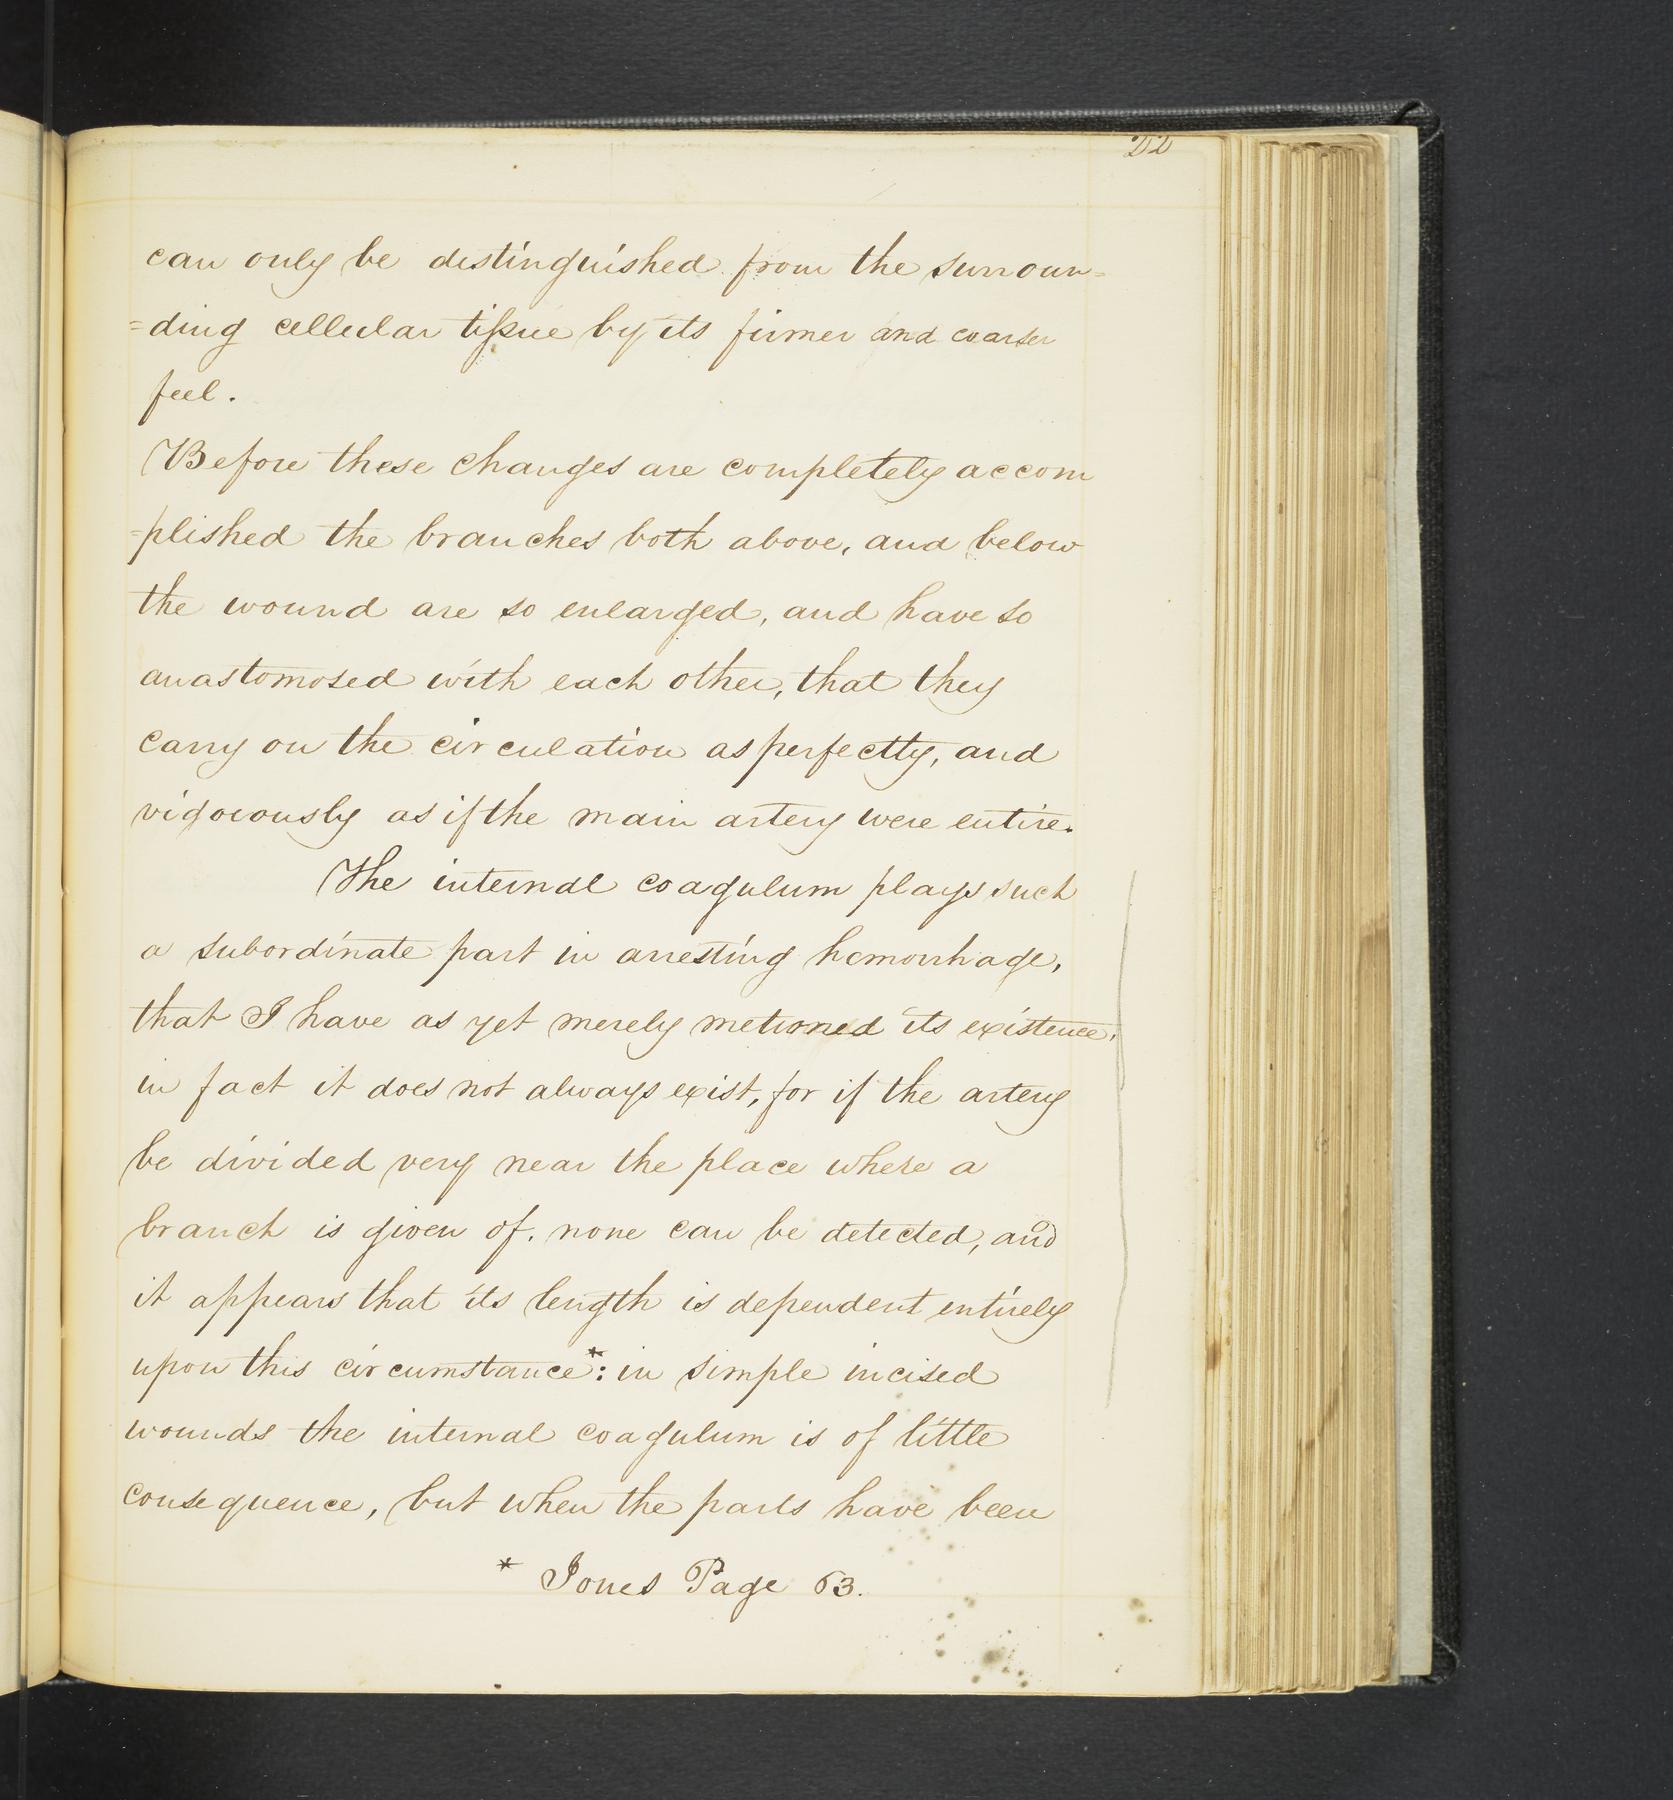 22
can only be distinguished from the surroun=
=ding cellular tissue by its firmer and coarser
feel.
Before these changes are completely accom
=plished the branches both above, and below
the wound are so enlarged, and have so
anastomosed with each other, that they
carry on the circulation as perfectly, and
vigorously as if the main artery were entire.
The internal coagulum plays such
a subordinate part in arresting hemorrhage,
that I have as yet merely metioned its existence,
in fact it does not always exist, for if the artery
be divided very near the place where a
branch is given of. none can be detected, and
it appears that its length is dependent entirely
upon this circumstance*: in simple incised
wounds the internal coagulum is of little
consequence, but when the parts have been
* Jones Page 63.